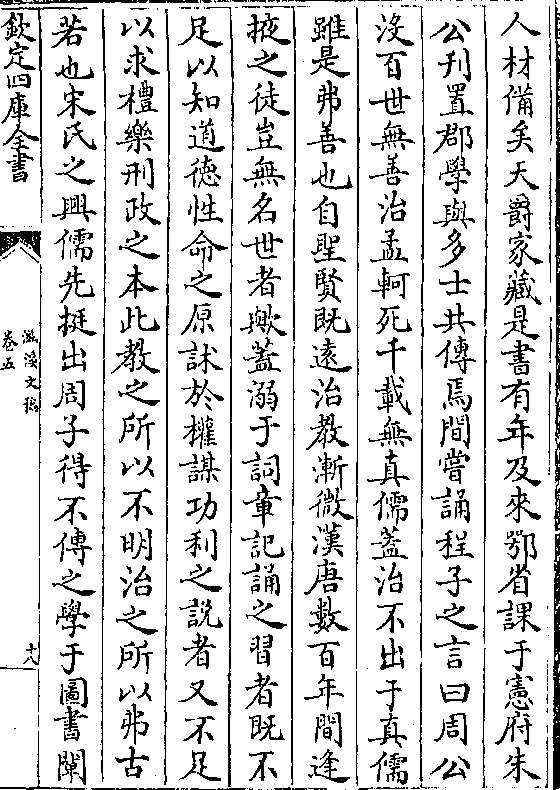 人材備矣天爵家藏是書有年及來鄂省課于憲府朱
公刋置郡學與多士共傳焉間嘗誦程子之言曰周公
沒百世無善治孟軻死千載無真儒蓋治不出于真儒
雖是弗善也自聖賢既遠治教漸微漢唐數百年間逢
掖之徒豈無名世者歟蓋溺于詞章記誦之習者既不
足以知道德性命之原訹於權謀功利之説者又不足
以求禮樂刑政之本此教之所以不明治之所以弗古
若也宋氏之興儒先挺出周子得不傳之學于圖書闡
欽定四庫全書
滋溪文稿
卷五
十八